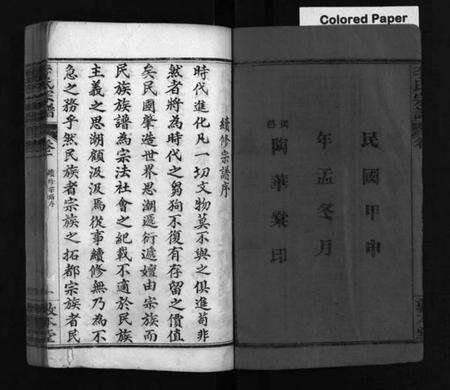 Colored Paper
民國甲申
年孟冬月
陶華棻印
續修宗譜序
時代進化凡一切文物莫不與之俱進苟非
然者將為時代之芻狗不復有存留之價值
矣民國肇造世界思潮遞衍遞嬗由宗族而
民族族譜為宗法社會之紀載不適於民族
主義之思潮顧汲汲焉從事續修無乃為不
急之務乎然民族者宗族之拓都宗族者民
續修宗譜序
敦本堂